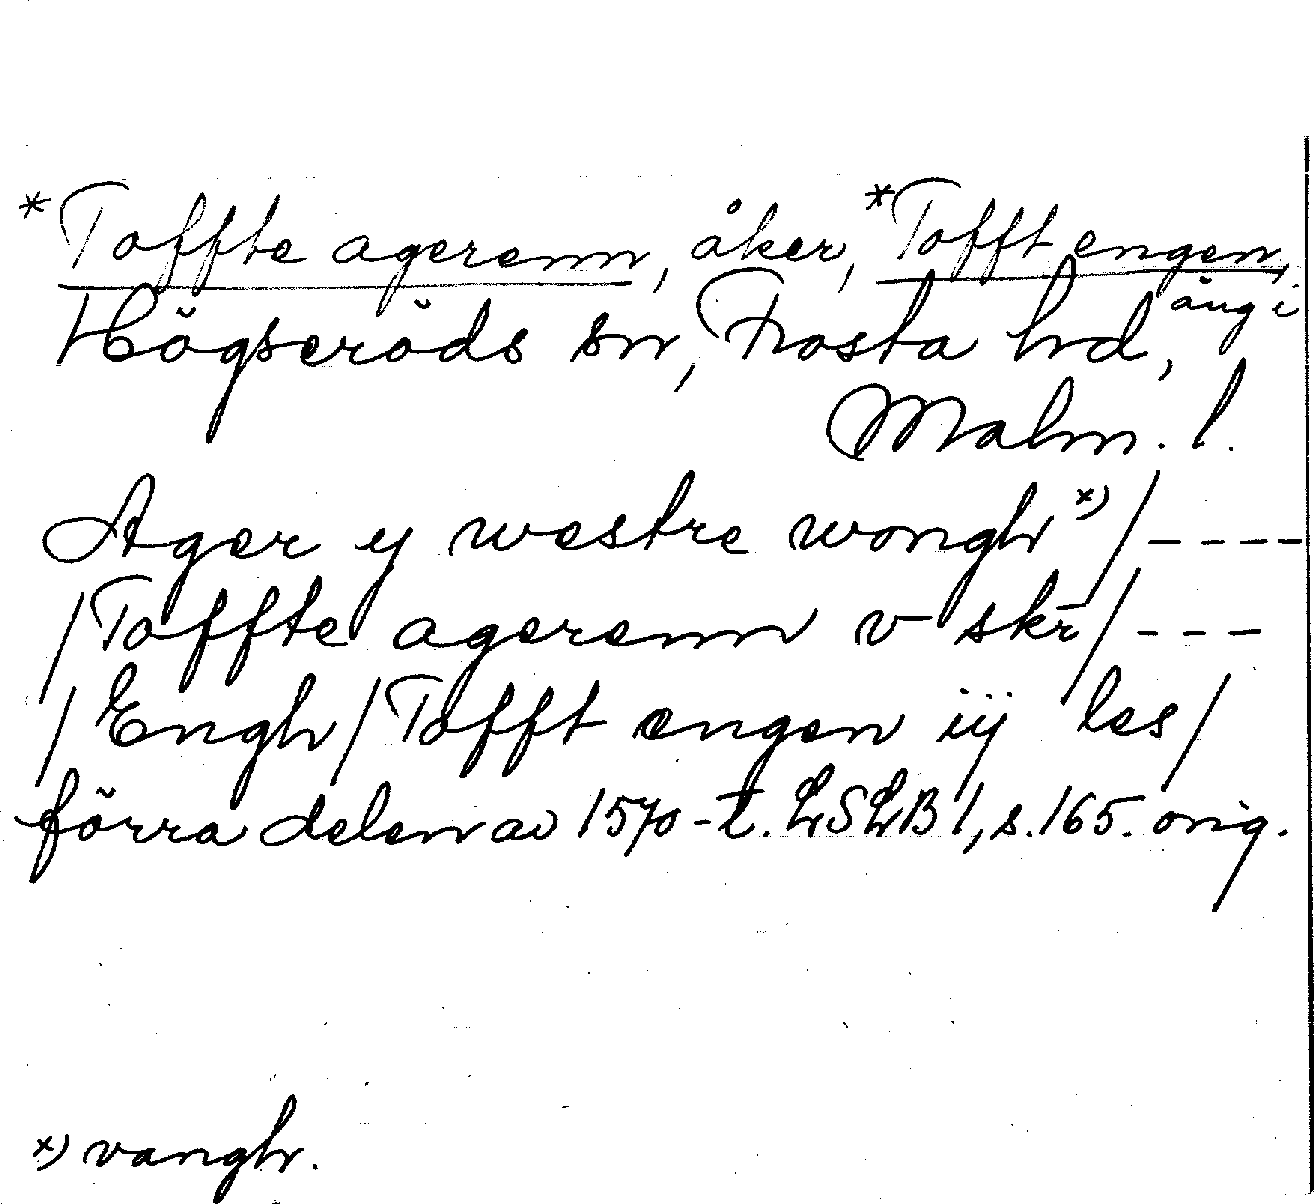 *Toffte agerenn, åker, *Tofft engen,
äng i
Högseröds sn, Frosta hd,
Malm. l.
Ager y westre wongh x) / ----
/ Toffte agerenn v skr̄ / ---
/ Engh / Tofft engen iij les /
förra delen av 1570-t. LSLB 1, s. 165. orig.
x) vangh.